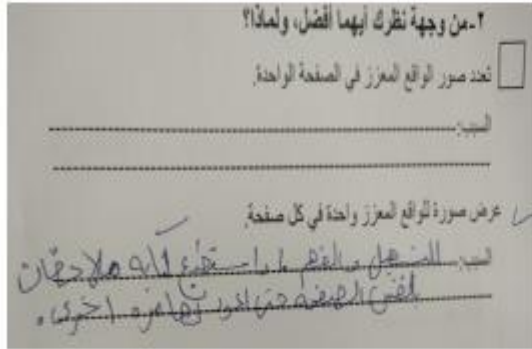 ٢-من وجهة نظرك أيهما أفضل، ولماذا؟
تعدد صور الواقع المعزز في الصفحة الواحدة.
السبب:
عرض صورة للواقع المعزز واحدة في كل صفحة.
السبب: للتسهيل والفهم استطيع كتابه ملاحظات
لنفس الصفحه حتى اعود لها مره اخرى.